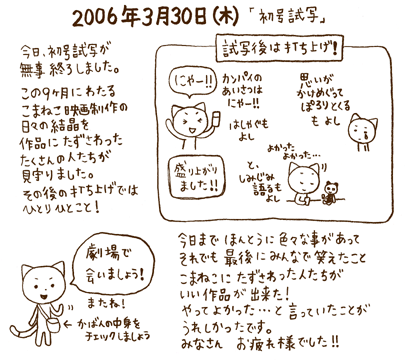 2006年3月30日(木)「初号試写」
今日、初号試写が
無事終了しました。
この9ヶ月にわたる
こまねこ映画制作の
日々の結晶を
作品にたずさわった
たくさんの人たちが
見守りました。
その後の打ち上げでは
ひとりひとこと!
試写後は打ち上げ!
にゃー!!
カンパイの
あいさつは
にゃー!!
はしゃぐも
よし
思いが
かけめぐって
ぽろりとくる
もよし
盛り上がり
ました!!
よかった
よかった…
と、
しみじみ
語るも
よし
劇場で
会いましょう!
またね!
←かばんの中身を
チェックしましょう
今日まで ほんとうに色々な事があって
それでも 最後にみんなで笑えたこと
こまねこに たずさわった人たちが
いい作品が 出来た!
やってよかった…と言っていたことが
うれしかったです。
みなさん お疲れ様でした!!